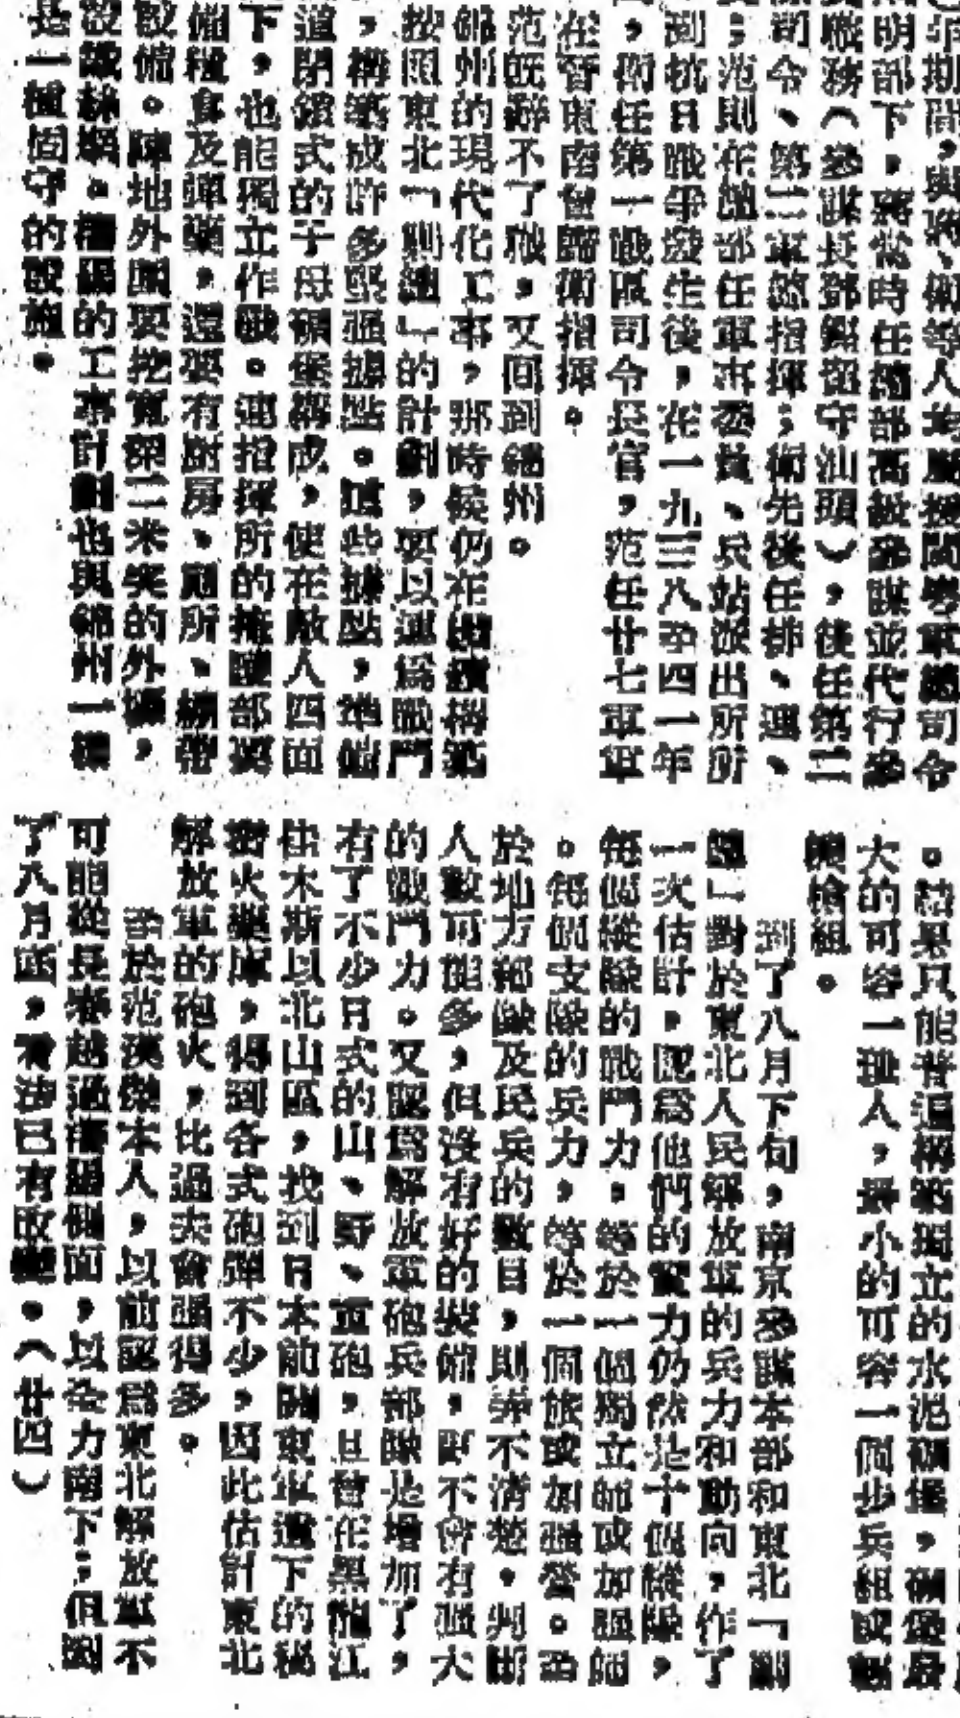 年期間，與蔣、衛等人均屬援閩粵軍總司令
明部下，蔣當時任總部高級參謀並代行參
職務（參謀長鄧鏗留守汕頭），後任第二
司令、第二軍總指揮；衛先後任排、連、
；范則在總部任軍事委員、兵站派出所所
到抗日戰爭發生後，在一九三八至四一年
，衛任第一戰區司令長官，范任廿七軍軍
在晉東南曾歸衛指揮。
范既辭不了職，又回到錦州。
錦州的現代化工事，那時候仍在繼續構築
按照東北「剿總」的計劃，要以連為戰鬥
，構築成許多堅強據點。這些據點，準備
道閉鎖式的子母碉堡構成，使在敵人四面
下，也能獨立作戰。連指揮所的掩蔽部要
儲糧食及彈藥，還要有廚房、廁所、綳帶
設備。陣地外圍要挖寬深二米突的外壕，
設鐵絲網。瀋陽的工事計劃也與錦州一樣
是一種固守的設施。
。結果只能普遍構築獨立的水泥碉堡，碉堡最
大的可容一班人，最小的可容一個步兵組或輕
機槍組。
到了八月下旬，南京參謀本部和東北「剿
總」對於東北人民解放軍的兵力和動向，作了
一次估計，認為他們的實力仍然是十個縱隊，
每個縱隊的戰鬥力，等於一個獨立師或加強師
。每個支隊的兵力，等於一個旅或加強營。至
於地方部隊及民兵的數目，則弄不清楚。判斷
人數可能多，但沒有好的裝備，即不會有強大
的戰鬥力。又認為解放軍砲兵部隊是增加了，
有了不少日式的山、野、重砲，且曾在黑龍江
佳木斯以北山區，找到日本前關東軍遺下的秘
密火藥庫，得到各式砲彈不少，因此估計東北
解放軍的砲火，比過去會強得多。
至於范漢傑本人，以前認為東北解放軍不
可能從長春越過瀋陽側面，以全力南下；但到
了八月底，看法已有改變。（廿四）